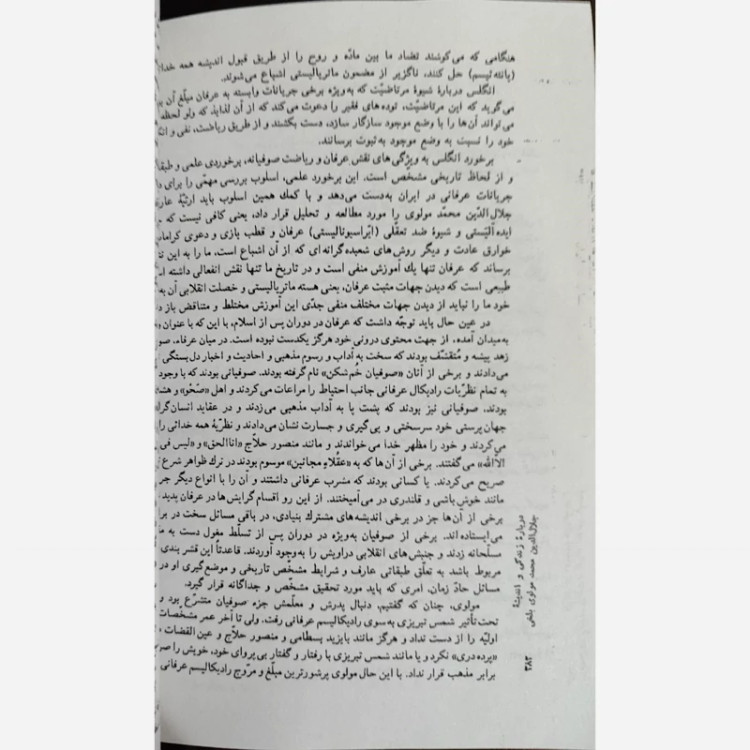 هنگامی که می‌کوشند تضاد ما بین مادّه و روح را از طریق قبول اندیشه همه خدا
(پانته‌ئیسم) حل کنند، ناگزیر از مضمون ماتریالیستی اشباع می‌شوند.
انگلس دربارهٔ شیوهٔ مرتاضیّت که به‌ویژه برخی جریانات وابسته به عرفان مبلّغ آن بو
می‌گوید که این مرتاضیّت، توده‌های فقیر را دعوت می‌کند که از آن لذاید که ولو لحظه
می‌تواند آن‌ها را با وضع موجود سازگار سازد، دست بکشند و از طریق ریاضت، نفی و انک
خود را نسبت به وضع موجود به‌ثبوت برسانند.
برخورد انگلس به ویژگی‌های نقش عرفان و ریاضت صوفیانه، برخوردی علمی و طبقا
و از لحاظ تاریخی مشخّص است. این برخورد علمی، اسلوب بررسی مهمّی را برای
جریانات عرفانی در ایران به‌دست می‌دهد و با کمك همین اسلوب باید ارثیّهٔ
جلال‌الدّین محمّد مولوی را مورد مطالعه و تحلیل قرار داد، یعنی کافی نیست که
ایده‌آلیّستی و شیوهٔ ضد تعقّلی (ایّراسیونالیستی) عرفان و قطب بازی و دعوی کرامات
خوارق عادت و دیگر روش‌های شعبده‌گرانه‌ای که از آن اشباع است، ما را به این
برساند که عرفان تنها یك آموزش منفی است و در تاریخ ما تنها نقش انفعالی داشته
طبیعی است که دیدن جهات مثبت عرفان، یعنی هسته ماتریالیستی و خصلت انقلابی آن
خود ما را نباید از دیدن جهات مختلف منفی جدّی این آموزش مختلط و متناقض باز
در عین حال باید توجّه داشت که عرفان در دوران پس از اسلام، با این که با عنوان
به‌میدان آمده، از جهت محتوی درونی خود هرگز یکدست نبوده است. در میان عرفاء، صو
زهد پیشه و مُتقشّف بودند که سخت به آداب و رسوم مذهبی و احادیث و اخبار دل‌بستگی
می‌دادند و برخی از آنان «صوفیان خُم‌شکن» نام گرفته بودند. صوفیانی بودند که با وجود
به تمام نظرّیات رادیکال عرفانی جانب احتیاط را مراعات می‌کردند و اهل «صَحْو» و
بودند. صوفیانی نیز بودند که پشت پا به آداب مذهبی می‌زدند و در عقاید انسان‌گرا
جهان پرستی خود سرسختی و پی‌گیری و جسارت نشان می‌دادند و نظریّهٔ همه خدائی را
می‌کردند و خود را مظهر خدا می‌خواندند و مانند منصور حلاّج «اناالحق» و «لیس فی
الاالله» می‌گفتند. برخی از آن‌ها که به «عقُلاءِ مجانین» موسوم بودند در ترك ظواهر شرع
صریح می‌کردند. یا کسانی بودند که مشرب عرفانی داشتند و آن را با انواع دیگر
مانند خوش‌باشی و قلندری در می‌آمیختند. از این رو اقسام گرایش‌ها در عرفان پدید
برخی از آن‌ها جز در برخی اندیشه‌های مشترك بنیادی، در باقی مسائل سخت در
می‌ایستاده‌اند. برخی از صوفیان به‌ویژه در دوران پس از تسلّط مغول دست به
مسلّحانه زدند و جنبش‌های انقلابی دراویش را به‌وجود آوردند. قاعدتاً این قشر بندی
مربوط باشد به تعلّق طبقاتی عارف و شرایط مشخّص تاریخی و موضع‌گیری او در
مسائل حادّ زمان، امری که باید مورد تحقیق مشخّص و جداگانه قرار گیرد.
مولوی، چنان که گفتیم، دنبال پدرش و معلّمش جزء صوفیان متشرّع بود و
تحت‌تأثیر شمس تبریزی به‌سوی رادیکالیسم عرفانی رفت. ولی تا آخر عمر مشخّصات
اولیّه را از دست نداد و هرگز مانند بایزید بسطامی و منصور حلاّج و عین القضات
«پرده‌دری» نکرد و یا مانند شمس تبریزی با رفتار و گفتار بی‌پروای خود، خویش را
برابر مذهب قرار نداد. با این حال مولوی پرشورترین مبلّغ و مروّج رادیکالیسم عرفانی
دربارهٔ زندگی و اندیشهٔ
جلال‌الدین محمد مولوی بلخی
۲۸۲